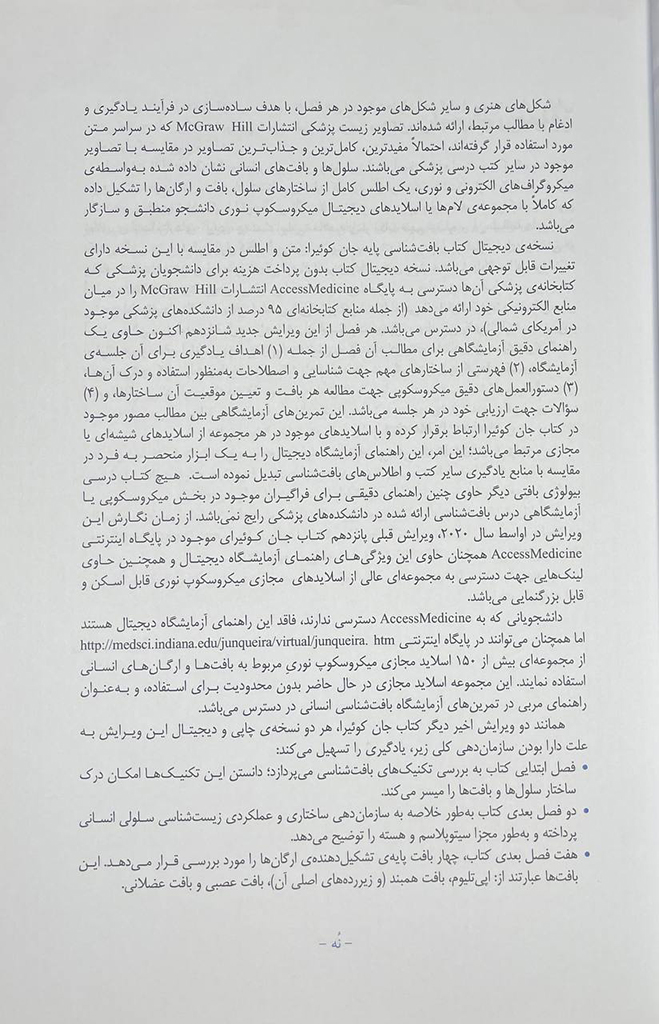 شکل‌های هنری و سایر شکل‌های موجود در هر فصل، با هدف ساده‌سازی در فرآیند یادگیری و
ادغام با مطالب مرتبط، ارائه شده‌اند. تصاویر زیست پزشکی انتشارات McGraw Hill که در سراسر متن
مورد استفاده قرار گرفته‌اند، احتمالاً مفیدترین، کامل‌ترین و جذاب‌ترین تصاویر در مقایسه با تصاویر
موجود در سایر کتب درسی پزشکی می‌باشند. سلول‌ها و بافت‌های انسانی نشان داده شده به‌واسطه‌ی
میکروگراف‌های الکترونی و نوری، یک اطلس کامل از ساختارهای سلول، بافت و ارگان‌ها را تشکیل داده
که کاملاً با مجموعه‌ی لام‌ها یا اسلایدهای دیجیتال میکروسکوپ نوری دانشجو منطبق و سازگار
می‌باشد.
نسخه‌ی دیجیتال کتاب بافت‌شناسی پایه جان کوئیرا: متن و اطلس در مقایسه با این نسخه دارای
تغییرات قابل توجهی می‌باشد. نسخه دیجیتال کتاب بدون پرداخت هزینه برای دانشجویان پزشکی که
کتابخانه‌ی پزشکی آن‌ها دسترسی به پایگاه AccessMedicine انتشارات McGraw Hill را در میان
منابع الکترونیکی خود ارائه می‌دهد (از جمله منابع کتابخانه‌ای ۹۵ درصد از دانشکده‌های پزشکی موجود
در آمریکای شمالی)، در دسترس می‌باشد. هر فصل از این ویرایش جدید شانزدهم اکنون حاوی یک
راهنمای دقیق آزمایشگاهی برای مطالب آن فصل از جمله (۱) اهداف یادگیری برای آن جلسه‌ی
آزمایشگاه، (۲) فهرستی از ساختارهای مهم جهت شناسایی و اصطلاحات به‌منظور استفاده و درک آن‌ها،
(۳) دستورالعمل‌های دقیق میکروسکوپی جهت مطالعه هر بافت و تعیین موقعیت آن ساختارها، و (۴)
سؤالات جهت ارزیابی خود در هر جلسه می‌باشد. این تمرین‌های آزمایشگاهی بین مطالب مصور موجود
در کتاب جان کوئیرا ارتباط برقرار کرده و با اسلایدهای موجود در هر مجموعه از اسلایدهای شیشه‌ای یا
مجازی مرتبط می‌باشد؛ این امر، این راهنمای آزمایشگاه دیجیتال را به یک ابزار منحصر به فرد در
مقایسه با منابع یادگیری سایر کتب و اطلاس‌های بافت‌شناسی تبدیل نموده است. هیچ کتاب درسی
بیولوژی بافتی دیگر حاوی چنین راهنمای دقیقی برای فراگیران موجود در بخش میکروسکوپی یا
آزمایشگاهی درس بافت‌شناسی ارائه شده در دانشکده‌های پزشکی رایج نمی‌باشد. از زمان نگارش این
ویرایش در اواسط سال ۲۰۲۰، ویرایش قبلی پانزدهم کتاب جان کوئیرای موجود در پایگاه اینترنتی
AccessMedicine همچنان حاوی این ویژگی‌های راهنمای آزمایشگاه دیجیتال و همچنین حاوی
لینک‌هایی جهت دسترسی به مجموعه‌ای عالی از اسلایدهای مجازی میکروسکوپ نوری قابل اسکن و
قابل بزرگنمایی می‌باشد.
دانشجویانی که به AccessMedicine دسترسی ندارند، فاقد این راهنمای آزمایشگاه دیجیتال هستند
اما همچنان می‌توانند در پایگاه اینترنتی http://medsci.indiana.edu/junqueira/virtual/junqueira. htm
از مجموعه‌ای بیش از ۱۵۰ اسلاید مجازی میکروسکوپ نوری مربوط به بافت‌ها و ارگان‌های انسانی
استفاده نمایند. این مجموعه اسلاید مجازی در حال حاضر بدون محدودیت برای استفاده، و به‌عنوان
راهنمای مربی در تمرین‌های آزمایشگاه بافت‌شناسی انسانی در دسترس می‌باشد.
همانند دو ویرایش اخیر دیگر کتاب جان کوئیرا، هر دو نسخه‌ی چاپی و دیجیتال این ویرایش به
علت دارا بودن سازمان‌دهی کلی زیر، یادگیری را تسهیل می‌کند:
• فصل ابتدایی کتاب به بررسی تکنیک‌های بافت‌شناسی می‌پردازد؛ دانستن این تکنیک‌ها امکان درک
ساختار سلول‌ها و بافت‌ها را میسر می‌کند.
• دو فصل بعدی کتاب به‌طور خلاصه به سازمان‌دهی ساختاری و عملکردی زیست‌شناسی سلولی انسانی
پرداخته و به‌طور مجزا سیتوپلاسم و هسته را توضیح می‌دهد.
• هفت فصل بعدی کتاب، چهار بافت پایه‌ی تشکیل‌دهنده‌ی ارگان‌ها را مورد بررسی قرار می‌دهد. این
بافت‌ها عبارتند از: اپی‌تلیوم، بافت همبند (و زیررده‌های اصلی آن)، بافت عصبی و بافت عضلانی.
– نُه –